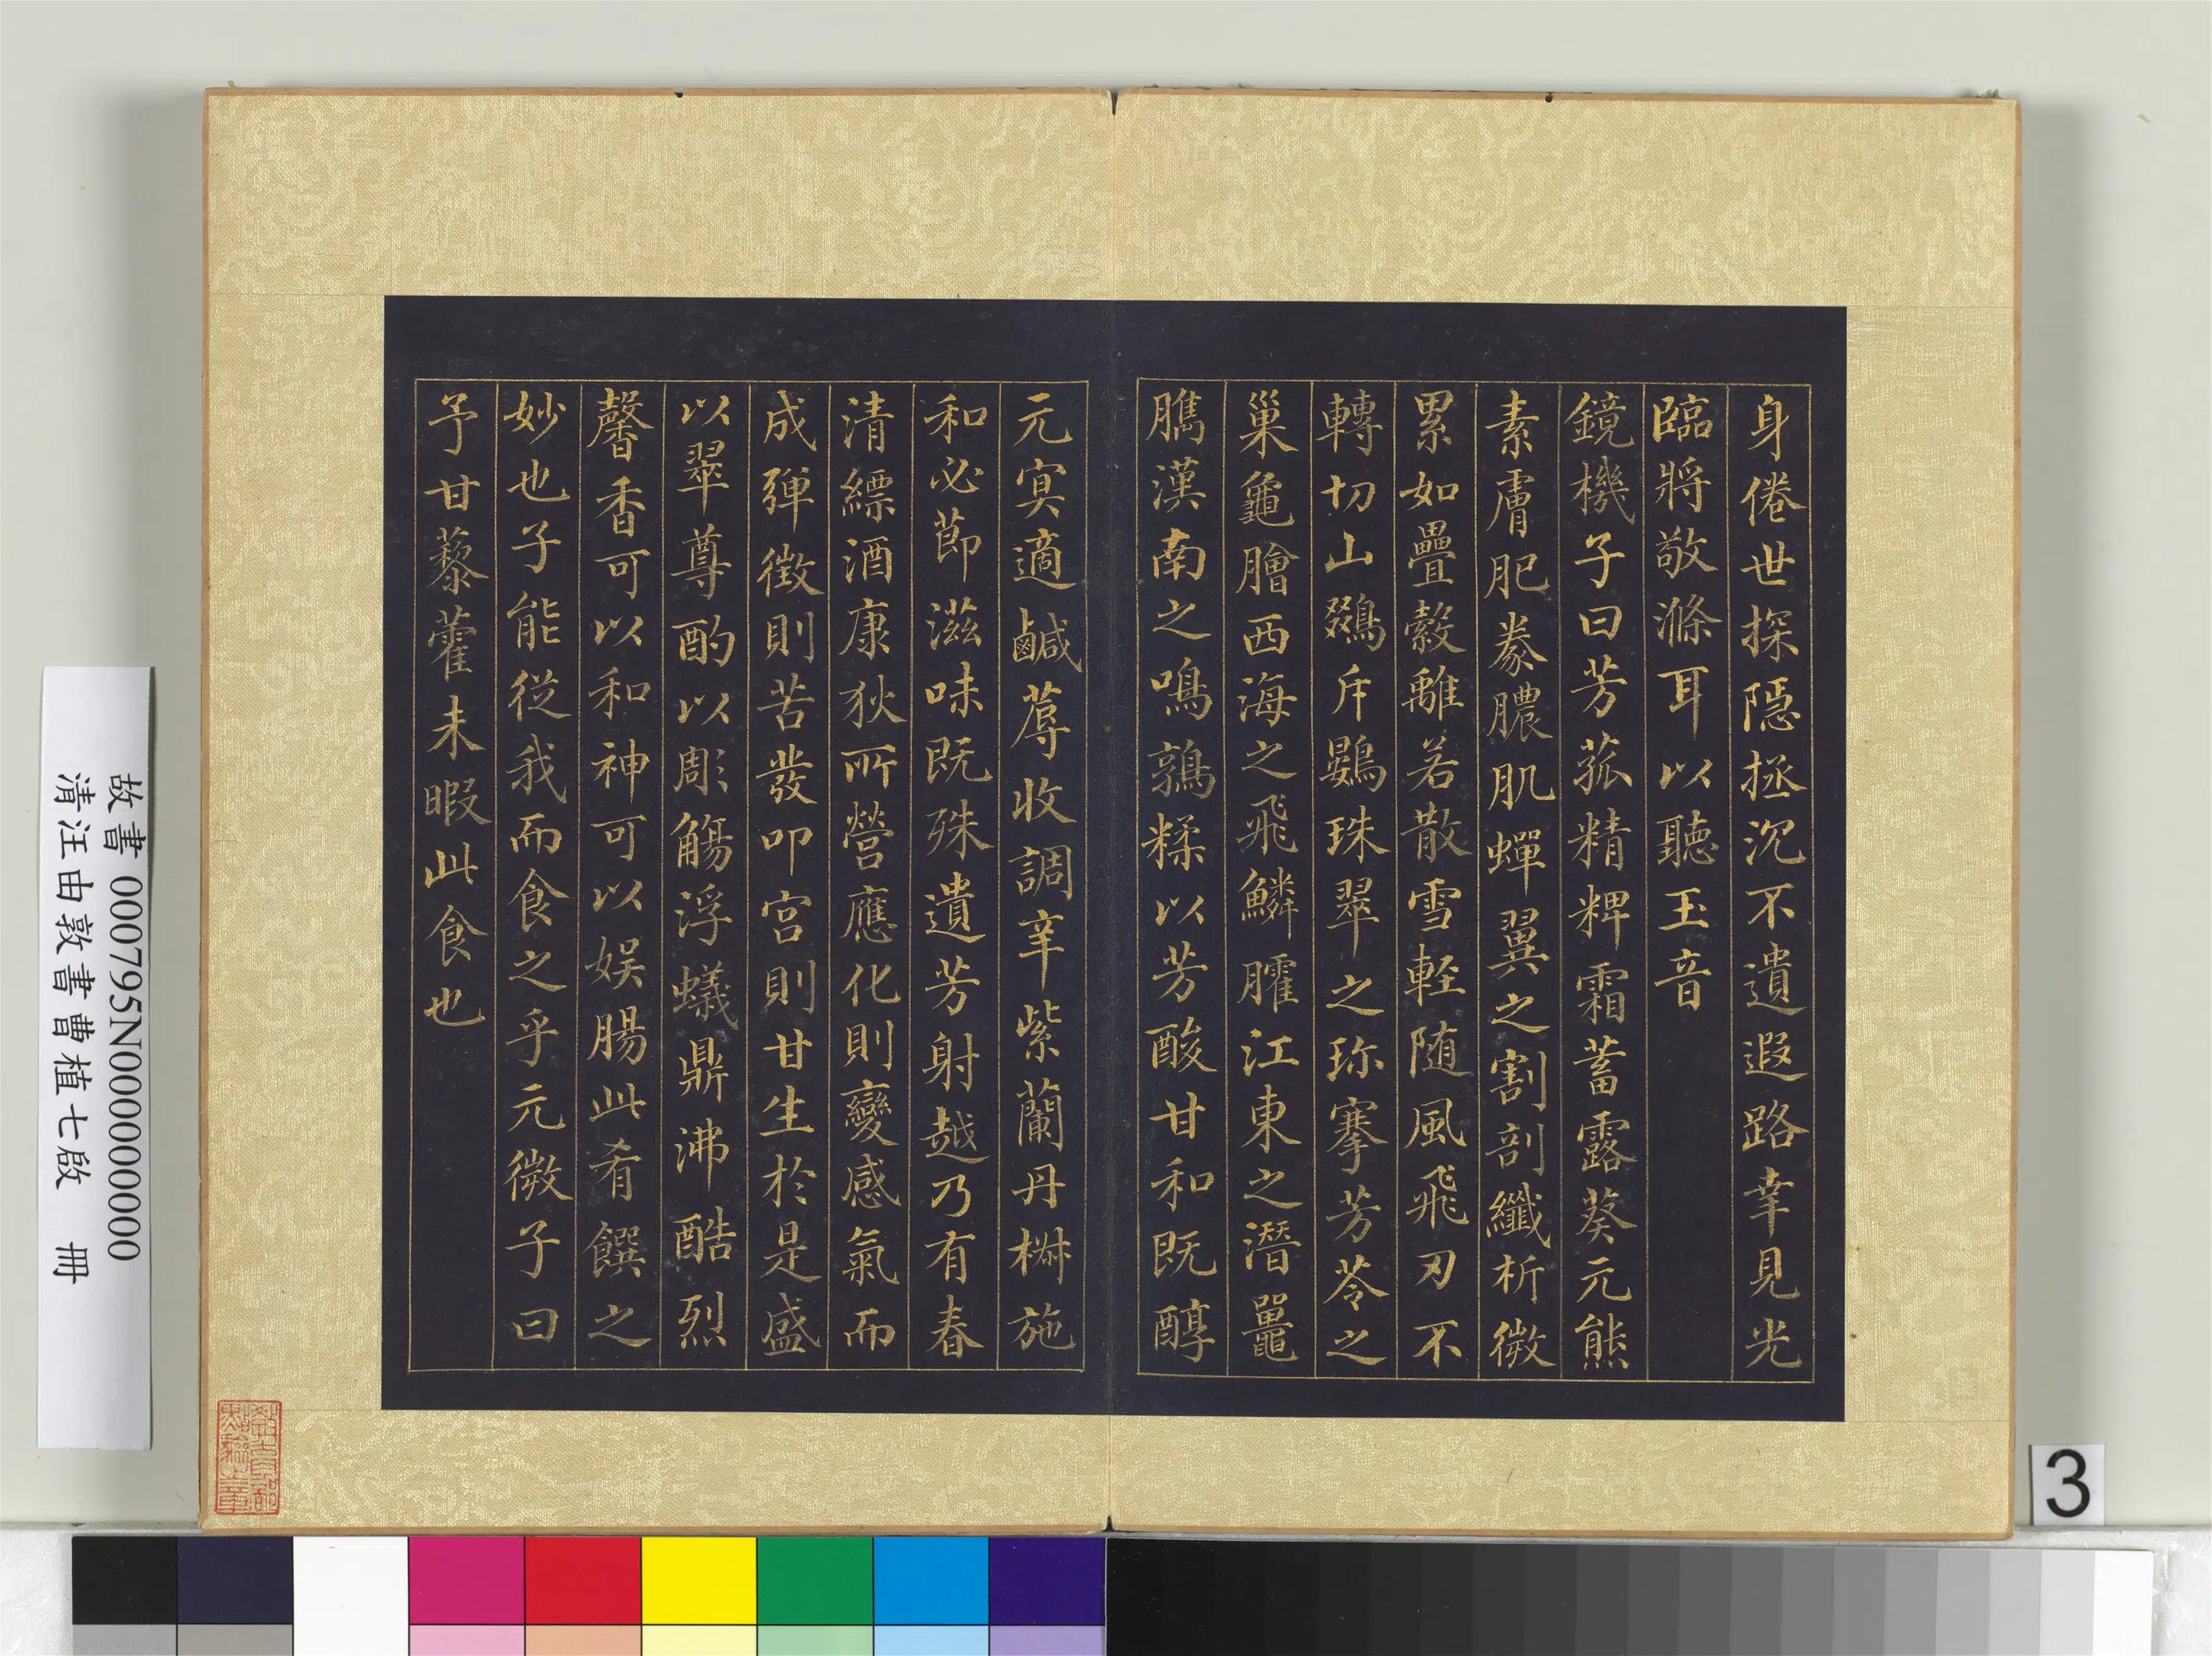 身倦世探隠拯沉不遺遐路幸見光
臨將敬滌耳以聽玉音
鏡機子曰芳菰精粺霜蓄露葵元熊
素膚肥豢膿肌蟬翼之割剖纖析微
累如疊縠離若散雪輕随風飛刃不
轉切山鵽斥鷃珠翠之珎搴芳苓之
巢龜膾西海之飛鱗臛江東之潛鼉
臇漢南之鳴鶉糅以芳酸甘和既醇
元冥適鹹蓐收調辛紫蘭丹椒施
和必節滋味既殊遺芳射越乃有春
清縹酒康狄所營應化則變感氣而
成彈徵則苦發叩宮則甘生於是盛
以翠尊酌以彫觴浮蟻鼎沸酷烈
馨香可以和神可以娛腸此肴饌之
妙也子能從我而食之乎元微子曰
予甘藜藿未暇此食也
故書 000795N000000000
清汪由敦書曹植七啟 冊
3